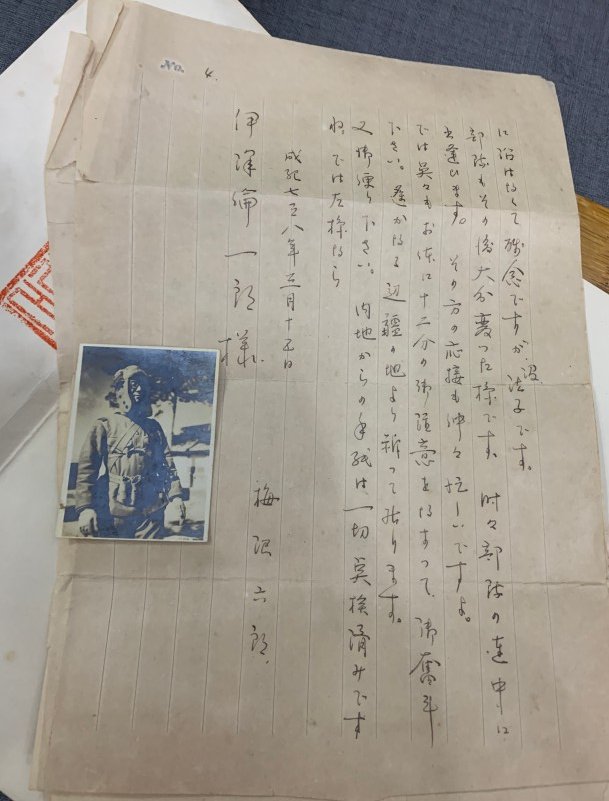 No. 4.
残念ですが、没法子です。
部隊もその後大分変った様です。時々部隊の連中に
出逢ひます。その方の応接も仲々忙しいですよ。
では呉々もお体に十二分の御注意をなすって、御奮斗
下さい。遙かなる辺疆の地より祈って居ります。
又御便り下さい。内地からの手紙は一切検済みです
ね。では左様なら
成紀七三八年三月十五日
伊澤倫一郎様
梅沢六郎.